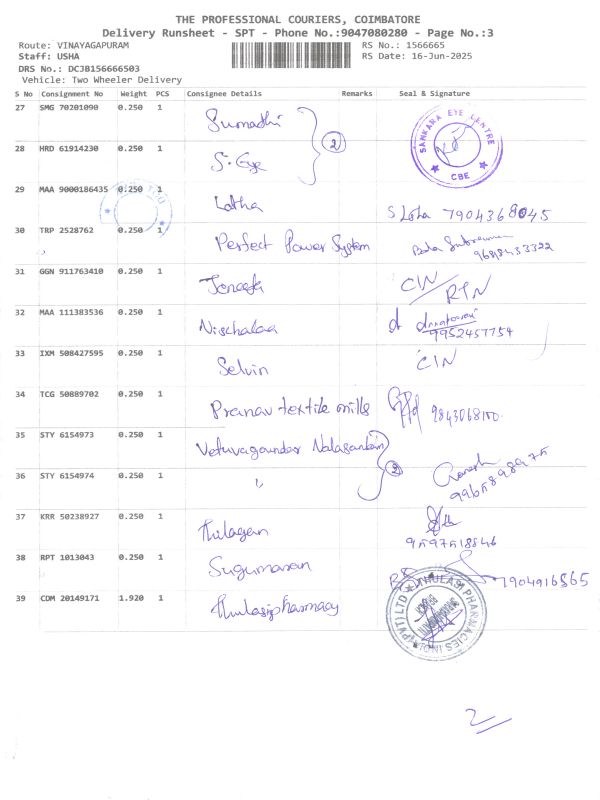 THE PROFESSIONAL COURIERS, COIMBATORE
Delivery Runsheet - SPT - Phone No.:9047080280 - Page No.:3
Route: VINAYAGAPURAM RS No.: 1566665
Staff: USHA RS Date: 16-Jun-2025
DRS No.: DCJB156666503
Vehicle: Two Wheeler Delivery
S No Consignment No Weight PCS Consignee Details Remarks Seal & Signature
27 SMG 70201090 0.250 1 Sumathi 2 SANKARA EYE CENTRE CBE
28 HRD 61914230 0.250 1 S. Eye
29 MAA 9000186435 0.250 1 Latha S Latha 7904368045
30 TRP 2528762 0.250 1 Perfect Power System
31 GGN 911763410 0.250 1 CIN RTN
32 MAA 111383536 0.250 1 9952457754
33 IXM 508427595 0.250 1 Selvin CIN
34 TCG 50889702 0.250 1 Pranav textile mills 9843068100
35 STY 6154973 0.250 1 2
36 STY 6154974 0.250 1 "
37 KRR 50238927 0.250 1 Thilagan 9597518546
38 RPT 1013043 0.250 1 Sugumaran 7904916565
39 CDM 20149171 1.920 1 Thulasipharmacy THULASI PHARMACIES INDIA (PVT) LTD
2